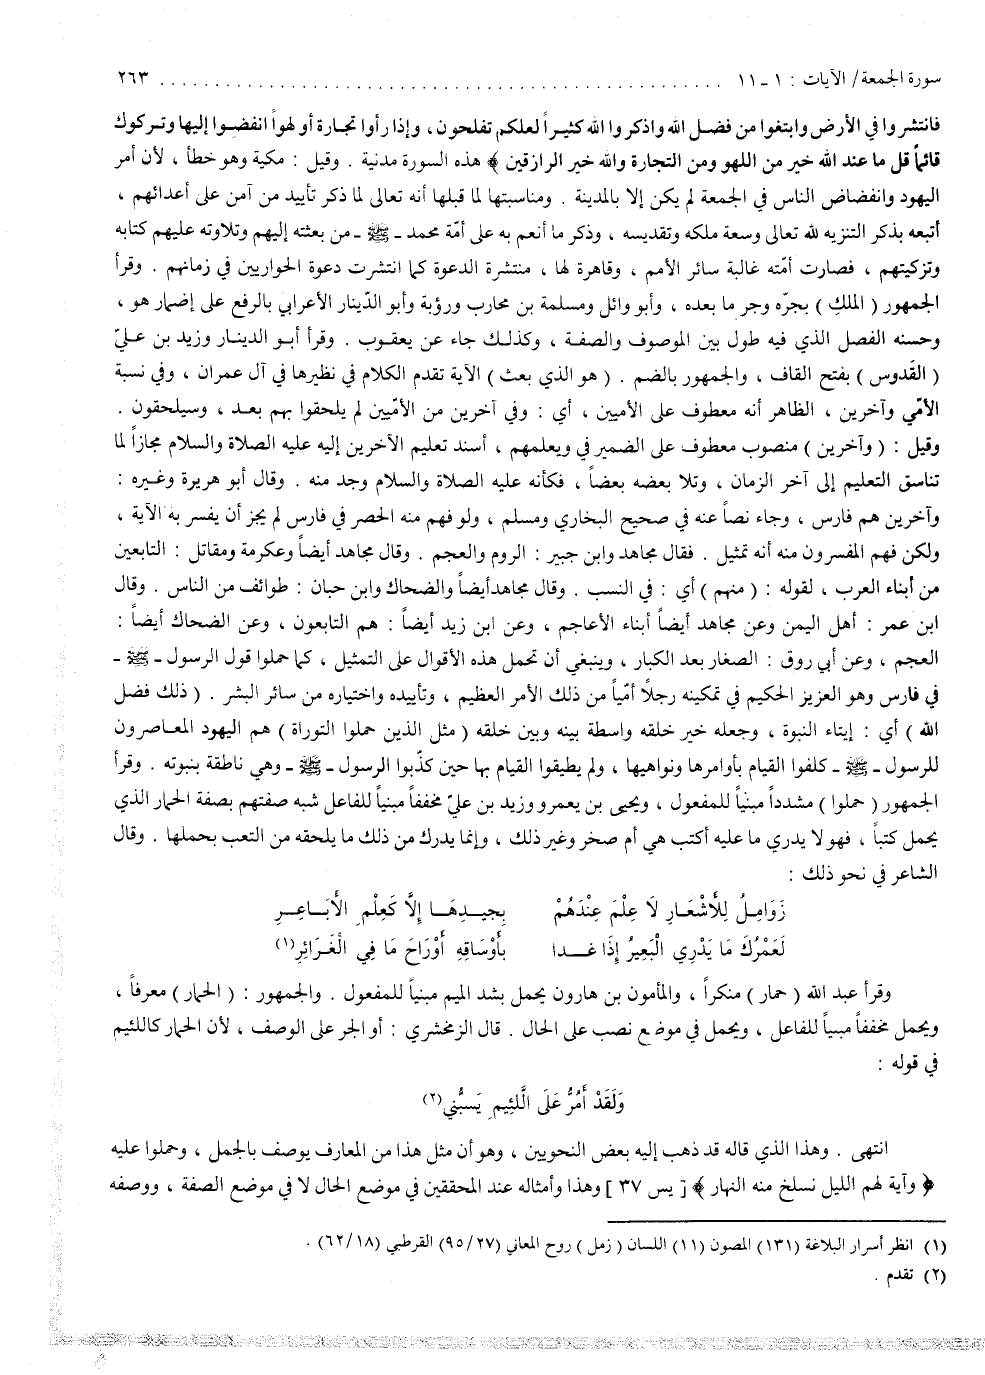 سورة الجمعة/ الآيات : ١ ـ ١١ . . . . . . . . . . . . . . . . . . . . . . . . . . . . . . . . . . . . . . . . . . . . . . ٢٦٣
فانتشروا في الأرض وابتغوا من فضل الله واذكروا الله كثيراً لعلكم تفلحون ، وإذا رأوا تجارة أو لهواً انفضوا إليها وتركوك
قائماً قل ما عند الله خير من اللهو ومن التجارة والله خير الرازقين ﴾ هذه السورة مدنية . وقيل : مكية وهو خطأ ، لأن أمر
اليهود وانفضاض الناس في الجمعة لم يكن إلا بالمدينة . ومناسبتها لما قبلها أنه تعالى لما ذكر تأييد من آمن على أعدائهم ،
أتبعه بذكر التنزيه لله تعالى وسعة ملكه وتقديسه ، وذكر ما أنعم به على أمّة محمد ـ ﷺ ـ من بعثته إليهم وتلاوته عليهم كتابه
وتزكيتهم ، فصارت أمّته غالبة سائر الأمم ، وقاهرة لها ، منتشرة الدعوة كما انتشرت دعوة الحواريين في زمانهم . وقرأ
الجمهور ( الملكِ ) بجرّه وجر ما بعده ، وأبو وائل ومسلمة بن محارب ورؤبة وأبو الدّينار الأعرابي بالرفع على إضمار هو ،
وحسنه الفصل الذي فيه طول بين الموصوف والصفة ، وكذلك جاء عن يعقوب . وقرأ أبو الدينار وزيد بن عليّ
( القَدوس ) بفتح القاف ، والجمهور بالضم . ( هو الذي بعث ) الآية تقدم الكلام في نظيرها في آل عمران ، وفي نسبة
الأمّي وآخرين ، الظاهر أنه معطوف على الأميين ، أي : وفي آخرين من الأمّيين لم يلحقوا بهم بعد ، وسيلحقون .
وقيل : ( وآخرين ) منصوب معطوف على الضمير في ويعلمهم ، أسند تعليم الآخرين إليه عليه الصلاة والسلام مجازاً لما
تناسق التعليم إلى آخر الزمان ، وتلا بعضه بعضاً ، فكأنه عليه الصلاة والسلام وجد منه . وقال أبو هريرة وغيره :
وآخرين هم فارس ، وجاء نصاً عنه في صحيح البخاري ومسلم ، ولو فهم منه الحصر في فارس لم يجز أن يفسر به الآية ،
ولكن فهم المفسرون منه أنه تمثيل . فقال مجاهد وابن جبير : الروم والعجم . وقال مجاهد أيضاً وعكرمة ومقاتل : التابعين
من أبناء العرب ، لقوله : ( منهم ) أي : في النسب . وقال مجاهد أيضاً والضحاك وابن حبان : طوائف من الناس . وقال
ابن عمر : أهل اليمن وعن مجاهد أيضاً أبناء الأعاجم ، وعن ابن زيد أيضاً : هم التابعون ، وعن الضحاك أيضاً :
العجم ، وعن أبي روق : الصغار بعد الكبار ، وينبغي أن تحمل هذه الأقوال على التمثيل ، كما حملوا قول الرسول ـ ﷺ ـ
في فارس وهو العزيز الحكيم في تمكينه رجلاً أمّياً من ذلك الأمر العظيم ، وتأييده واختياره من سائر البشر . ( ذلك فضل
الله ) أي : إيتاء النبوة ، وجعله خير خلقه واسطة بينه وبين خلقه ( مثل الذين حملوا التوراة ) هم اليهود المعاصرون
للرسول ـ ﷺ ـ كلفوا القيام بأوامرها ونواهيها ، ولم يطيقوا القيام بها حين كذّبوا الرسول ـ ﷺ ـ وهي ناطقة بنبوته . وقرأ
الجمهور ( حملوا ) مشدداً مبنياً للمفعول ، ويحيى بن يعمر وزيد بن عليّ مخففاً مبنياً للفاعل شبه صفتهم بصفة الحمار الذي
يحمل كتباً ، فهو لا يدري ما عليه أكتب هي أم صخر وغير ذلك ، وإنما يدرك من ذلك ما يلحقه من التعب بحملها . وقال
الشاعر في نحو ذلك :
زَوَامِلُ لِلأَشْعَارِ لَا عِلْمَ عِنْدَهُمْ بِجيدِهَا إِلَّا كَعِلْمِ الأَبَاعِرِ
لَعَمْرُكَ مَا يَدْرِي الْبَعِيرُ إِذَا غَدا بِأَوْسَاقِهِ أَوْرَاحَ مَا فِي الْغَرَائِرِ(١)
وقرأ عبد الله ( حمار ) منكراً ، والمأمون بن هارون يحمل بشد الميم مبنياً للمفعول . والجمهور : ( الحمار ) معرفاً ،
ويحمل مخففاً مبنياً للفاعل ، ويحمل في موضع نصب على الحال . قال الزمخشري : أو الجر على الوصف ، لأن الحمار كاللئيم
في قوله :
وَلَقَدْ أَمُرُّ عَلَى الَّلئِيمِ يَسبُّني(٢)
انتهى . وهذا الذي قاله قد ذهب إليه بعض النحويين ، وهو أن مثل هذا من المعارف يوصف بالجمل ، وحملوا عليه
﴿ وآية لهم الليل نسلخ منه النهار ﴾ [ يس ٣٧ ] وهذا وأمثاله عند المحققين في موضع الحال لا في موضع الصفة ، ووصفه
(١) انظر أسرار البلاغة (١٣١) المصون (١١) اللسان ( زمل ) روح المعاني (٩٥/٢٧) القرطبي (٦٢/١٨) .
(٢) تقدم .